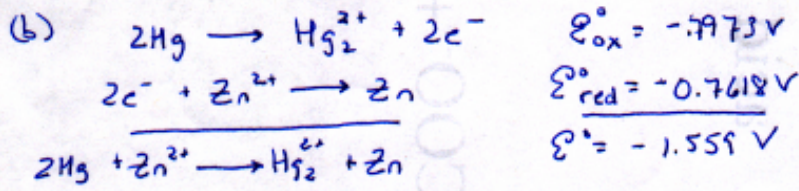 (b) 2Hg → Hg₂²⁺ + 2e⁻ ℰ°ox = -.7973 V
2e⁻ + Zn²⁺ → Zn ℰ°red = -0.7618 V
2Hg + Zn²⁺ → Hg₂²⁺ + Zn ℰ° = -1.559 V